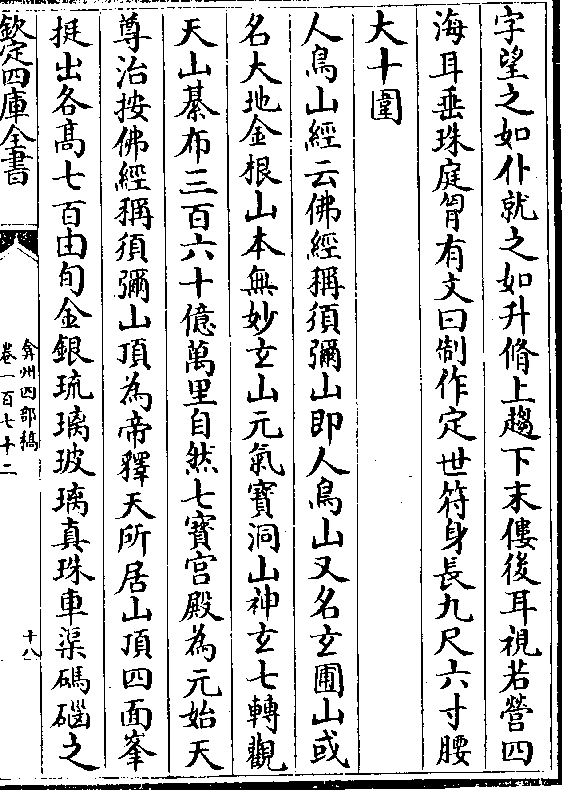 字望之如仆就之如升脩上趨下末僂後耳視若營四
海耳垂珠庭胷有文曰制作定世符身長九尺六寸腰
大十圍
人鳥山經云佛經稱須彌山即人鳥山又名玄圃山或
名大地金根山本無妙玄山元氣寶洞山神玄七轉觀
天山綦布三百六十億萬里自然七寶宫殿為元始天
尊治按佛經稱須彌山頂為帝釋天所居山頂四面峯
挺出各髙七百由旬金銀琉璃玻璃真珠車渠碼碯之
欽定四庫全書
弇州四部稿
卷一百七十二
十八